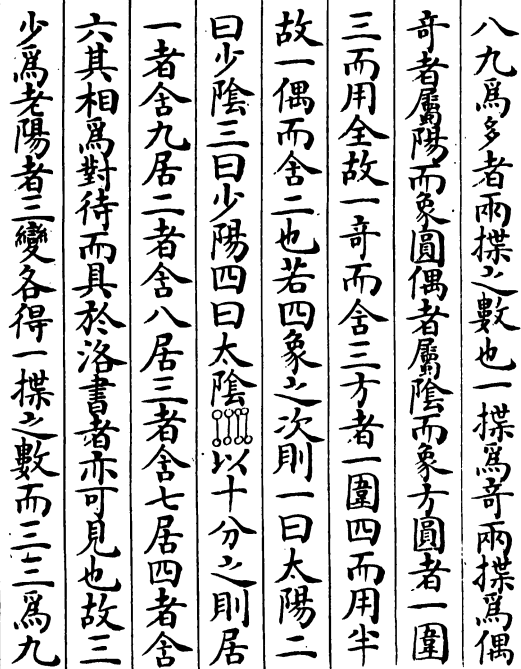 八九爲多者兩揲之數也一揲爲奇兩揲爲偶
奇者屬陽而象圓偶者屬陰而象方圓者一圍
三而用全故一奇而含三方者一圍四而用半
故一偶而含二也若四象之次則一曰太陽二
曰少陰三曰少陽四曰太陰以十分之則居
一者含九居二者含八居三者含七居四者含
六其相爲對待而具於洛書者亦可見也故三
少爲老陽者三變各得一揲之數而三三爲九